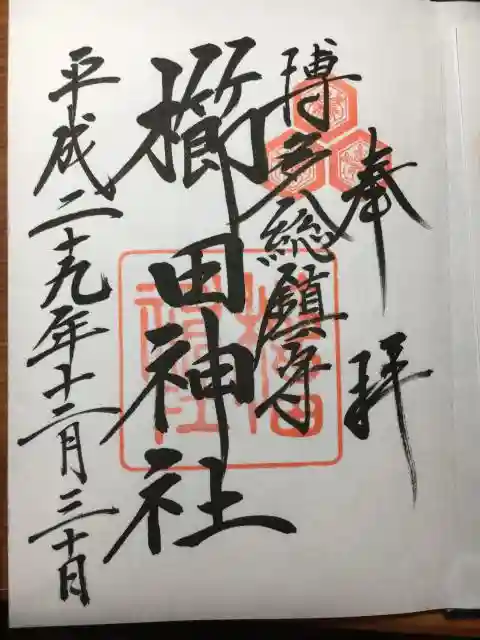 奉拝
博多総鎮守
櫛田神社
平成二十九年十二月三十日
櫛田
神社